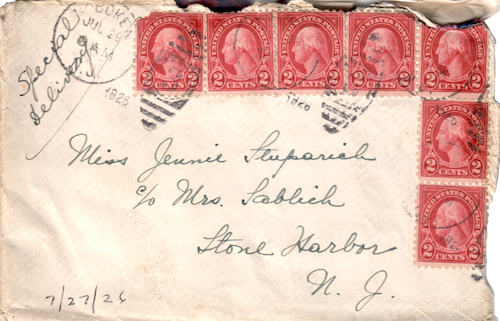 Special
delivery
JUL 26
AM
1926
1926
UNITED STATES POSTAGE
2 CENTS 2
UNITED STATES POSTAGE
2 CENTS 2
UNITED STATES POSTAGE
2 CENTS 2
UNITED STATES POSTAGE
2 CENTS 2
UNITED STATES POSTAGE
2 CENTS 2
UNITED STATES POSTAGE
2 CENTS 2
UNITED STATES POSTAGE
2 CENTS 2
Miss Jennie Stuparich
c/o Mrs. Sablich
Stone Harbor
N. J.
7/27/26